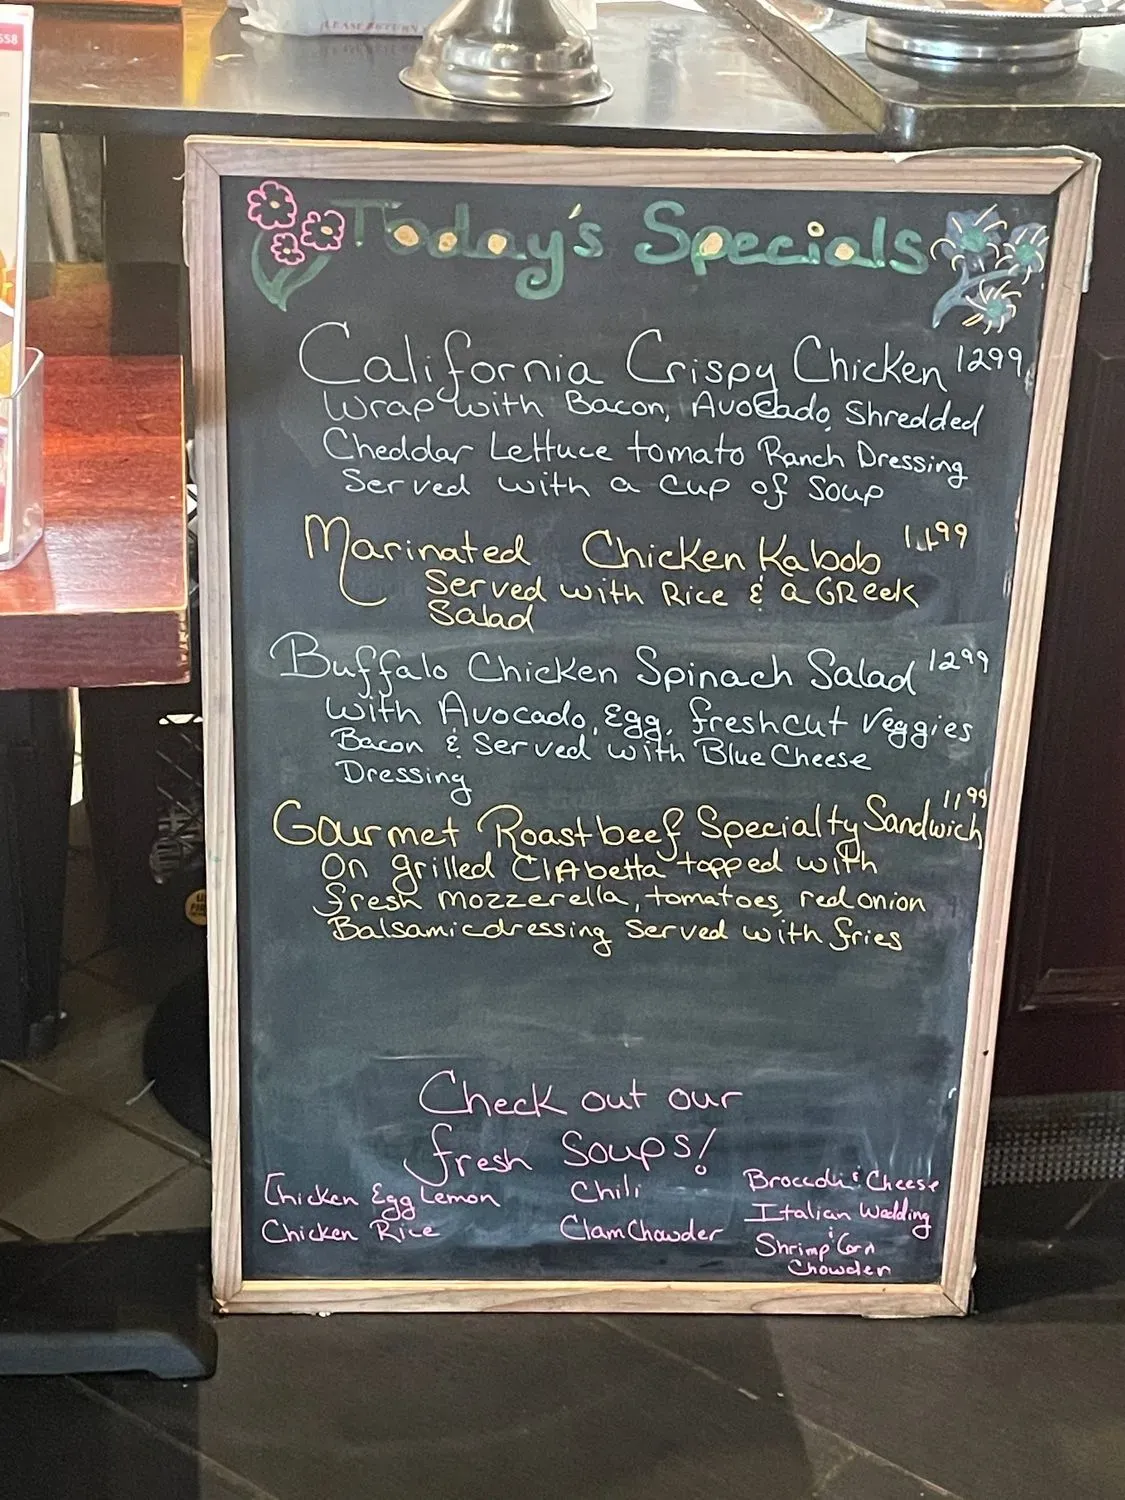 558
PLEASE RETURN
Today's Specials
California Crispy Chicken 1299
Wrap with Bacon, Avocado, Shredded
Cheddar Lettuce tomato Ranch Dressing
Served with a cup of Soup
Marinated Chicken Kabob 1199
Served with Rice & a GReek
Salad
Buffalo Chicken Spinach Salad 1299
with Avocado, Egg, freshcut Veggies
Bacon & Served with Blue Cheese
Dressing
Gourmet Roastbeef Specialty Sandwich 1199
On grilled CIAbetta topped with
fresh mozzerella, tomatoes, red onion
Balsamicdressing Served with fries
Check out our
fresh Soups!
Chicken Egg Lemon Chili Broccoli & Cheese
Chicken Rice Clam Chowder Italian Wedding
Shrimp & Corn
Chowder